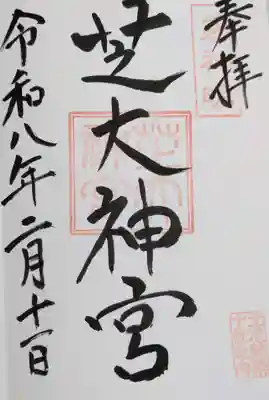 奉拝
芝大神宮
令和八年二月十一日